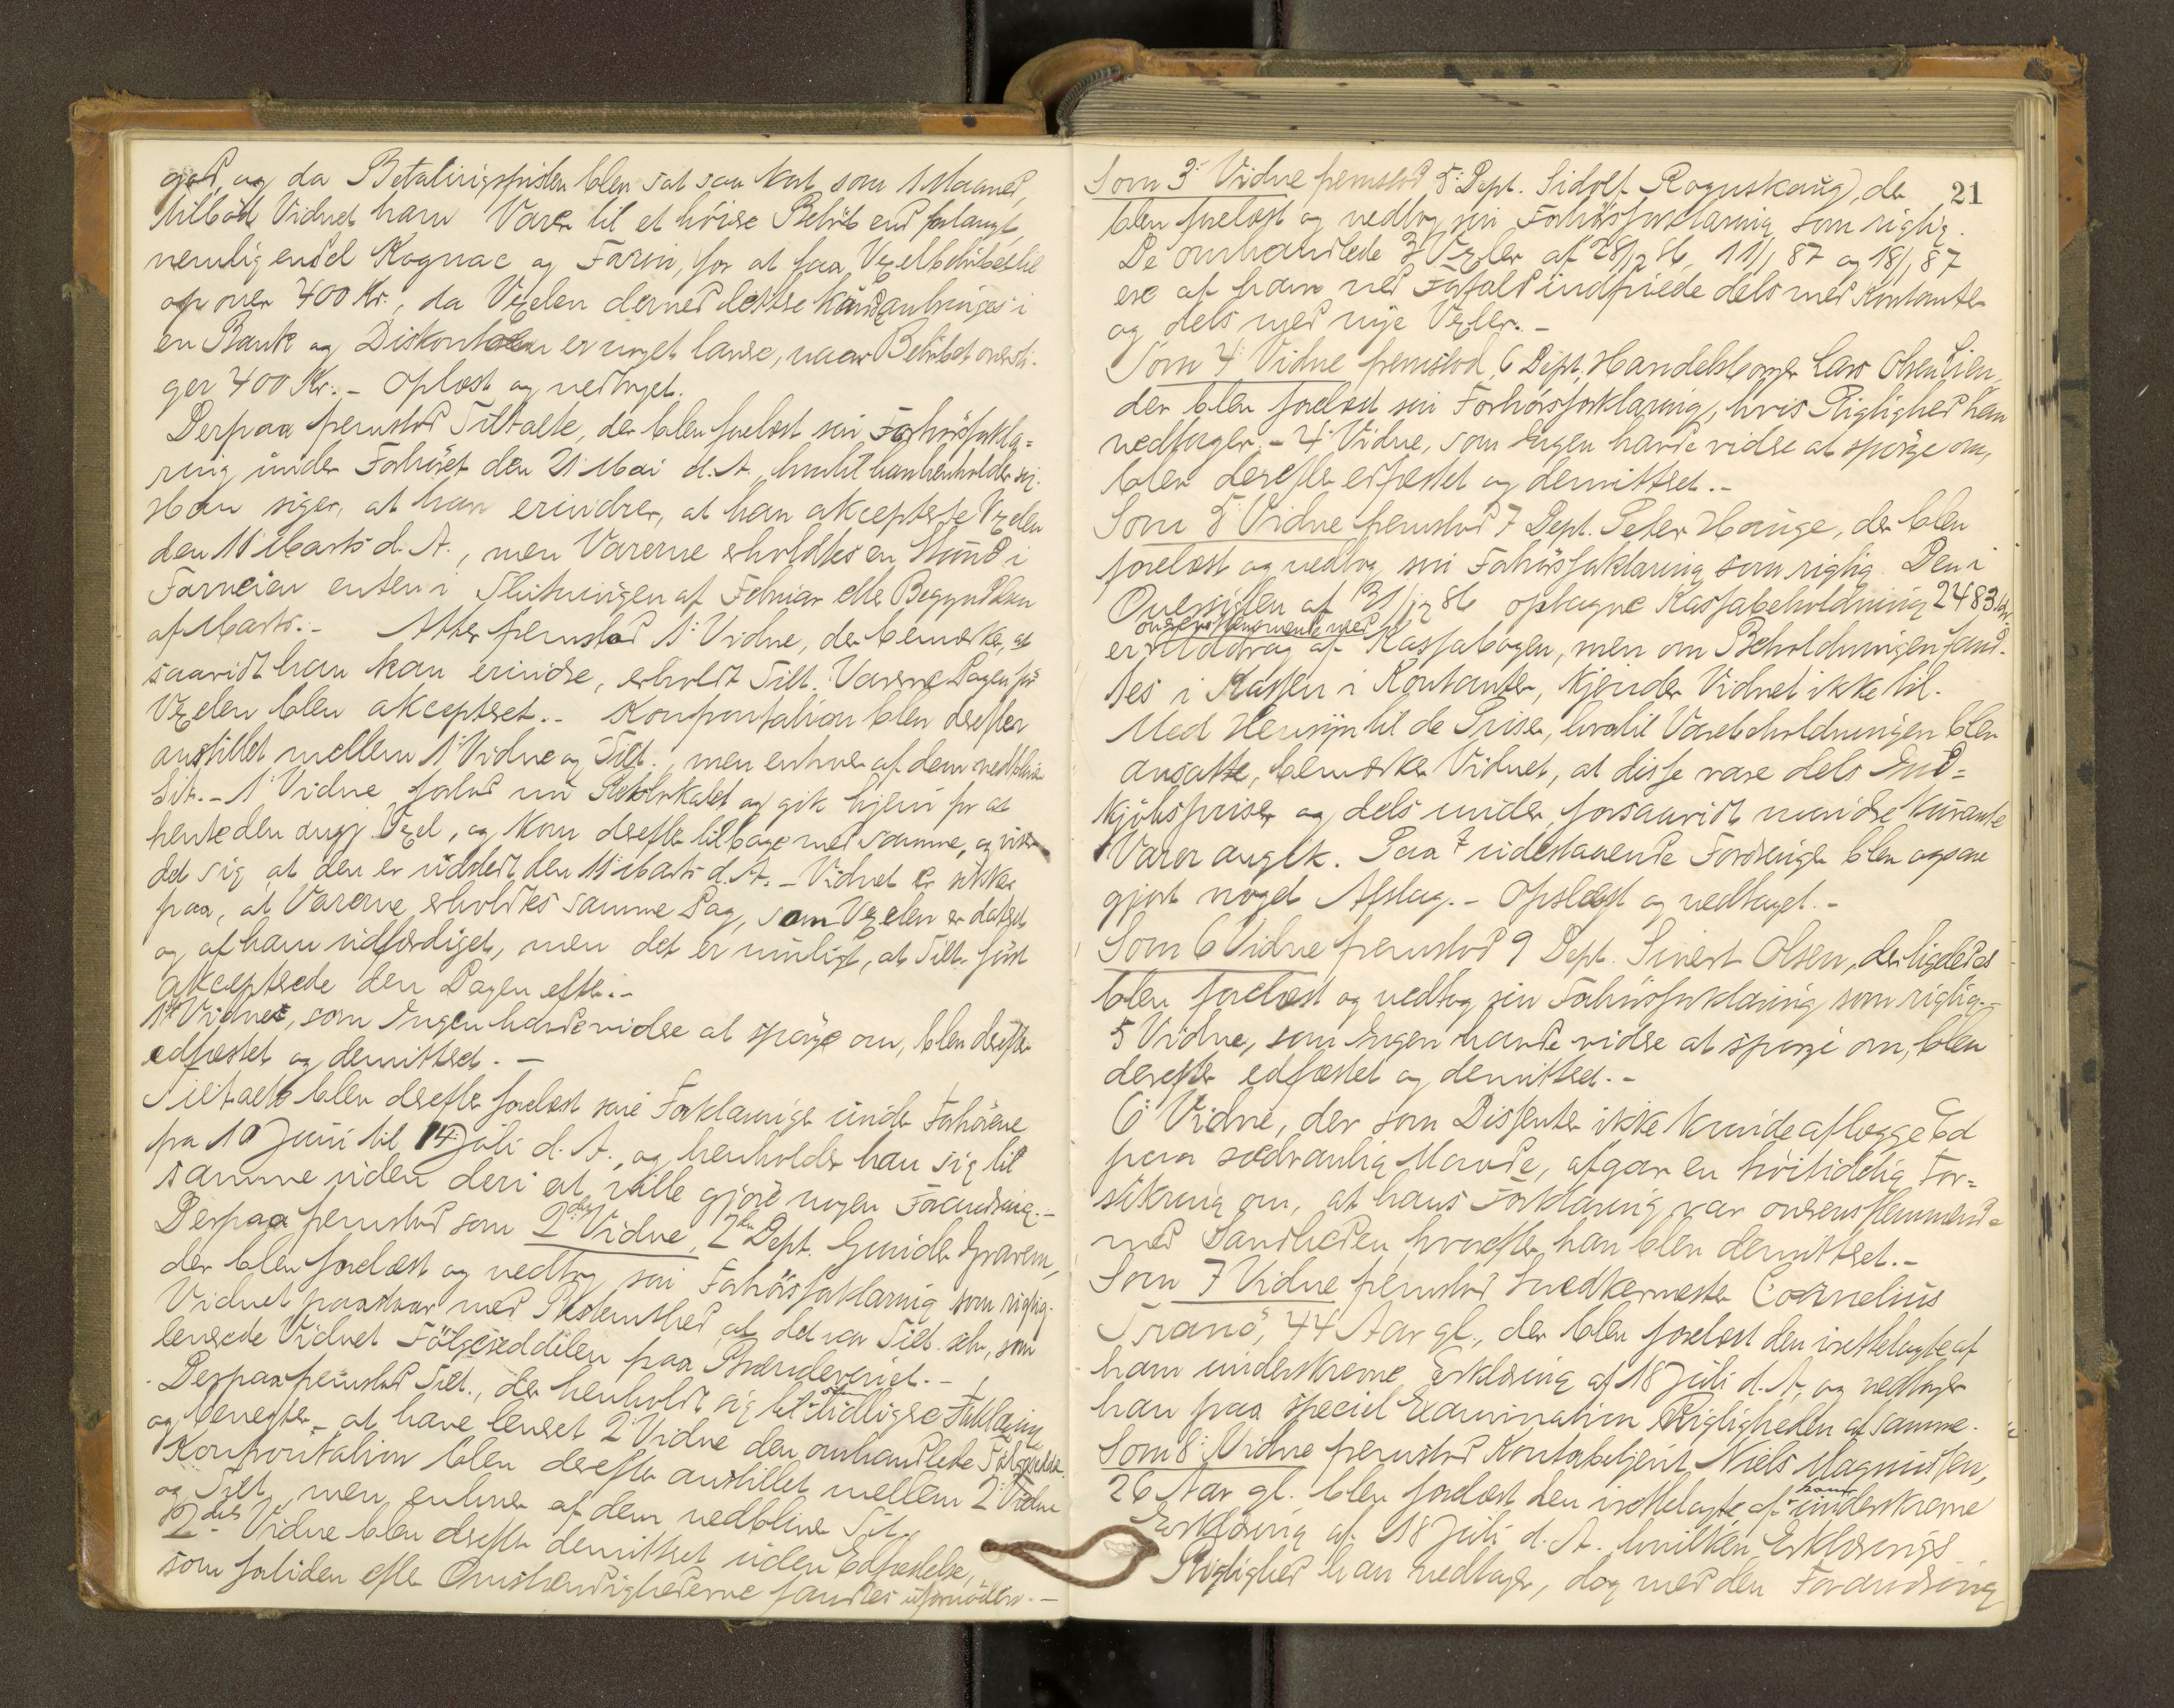 god, og da Betalingsfristen blev sat saa kort som 1 Maaned,
tilbød Vidnet ham Varer til et høiere Beløb end forlangt,
nemlig endel Kognac og Farin, for at faa Vexelbeløbet til
op over 400 Kr., da Vexelen derved lettere kan anbringes i
en Bank og Diskontoen er noget lavere, naar Beløbet oversti-
ger 400 Kr. - Oplæst og vedtaget.
Derpaa fremstod Tiltalte, der blev forelæst sin Forhørsforkla=
ring under Forhøret den 21 Mai d. A., hvortil han henholder sig.
Han siger, at han erindrer, at han akcepterte Vexelen
den 11 Marts d. A., men Varerne erholdtes en Stund i
Forveien enten i Slutningen af Februar eller Begyndelsen
af Marts. - Atter fremstod 1' Vidne, der bemærker, at
saavidt han kan erindre, erholdt Tilt. Varerne Dagen før
Vexelen blev akcepteret. - Konfrontation blev derefter
anstillet mellem 1' Vidne og Tilt., men enhver af dem vedblev
Sit. - 1' Vidne forlod nu Retslokalet og gik hjem for at
hente den angj. Vexel, og kom derefter tilbage med samme, og viser
det sig at den er udstedt den 11 Marts d. A. - Vidnet er sikker
paa, at Varerne erholdtes samme Dag, som Vexelen er dateret
og af ham udfærdiget, men det er muligt, at Tilt. først
akcepterede den Dagen efter. -
1ste Vidne, som Ingen havde videre at spørge om, blev derefter
edfæstet og demitteret. -
Tiltalte blev derefter forelæst sine Forklaringer under Forhørene
fra 10 Juni til 14 Juli d. A., og henholder han sig til
samme uden deri at ville gjøre nogen Forandring. -
Derpaa fremstod som 2det Vidne, 2den Dept. Gunder Gravem,
der blev forelæst og vedtog sin Forhørsforklaring som rigtig.
Vidnet paastaar med Bestemthed at det var Tilt. selv, som
leverede Vidnet Følgeseddelen paa Brænderiet. -
Derpaa fremstod Tilt., der henholdt sig til sin tidligere Forklaring
og benegter at have leveret 2' Vidne den omhandlede Følgeseddel.
Konfrontation blev derefter anstillet mellem 2' Vidne
og Tilt., men enhver af dem vedblev Sit.
2det Vidne blev derefter demitteret uden Edfæstelse,
som for tiden efter Omstændighederne fandtes ufornøden. -
21
Som 3' Vidne fremstod 5' Dept. Sidolf Rognskaug, der
blev forelæst og vedtog sin Forhørsforklaring som rigtig.
De omhandlede 3 Vexler af 28/12 86, 11/1 87 og 18/1 87
ere af ham ved Forfald indfriede dels med Kontanter
og dels med nye Vexler. -
Som 4' Vidne fremstod 6 Dept. Handelsborger Lars Olsen Lien,
der blev forelæst sin Forhørsforklaring, hvis Rigtighed han
vedtager. - 4' Vidne, som Ingen havde videre at spørge om,
blev derefter edfæstet og demitteret. -
Som 5' Vidne fremstod 7 Dept. Peter Hauge, der blev
forelæst og vedtog sin Forhørsforklaring som rigtig. Den i
Oversigten af 31/12 86 optagne Kassabeholdning 2483 Kr.
overensstemmende med
er Uddrag af Kassabogen, men om Beholdningen fand-
tes i Kassen i Kontanter, kjender Vidnet ikke til.
Med Hensyn til de Priser, hvortil Varebeholdningen blev
ansatte, bemærker Vidnet, at disse vare dels Ind=
kjøbspriser og dels under, forsaavidt mindre kurante
Varer angik. Paa udestaaende Fordringer blev ogsaa
gjort noget Afslag. - Oplæst og vedtaget. -
Som 6 Vidne fremstod 9 Dept. Sivert Olsen, der ligeledes
blev forelæst og vedtog sin Forhørsforklaring som rigtig. -
5 Vidne, som Ingen havde videre at spørge om, blev
derefter edfæstet og demitteret. -
6' Vidne, der som Dissenter ikke kunde aflægge Ed
paa sædvanlig Maade, afgav en høitidelig For=
sikring om, at hans Forklaring var overensstemmende
med Sandheden hvorefter han blev demitteret. -
Som 7 Vidne fremstod Snedkermester Cornelius
Tranø, 44 Aar gl., der blev forelæst den irettelagte af
ham underskrevne Erklæring af 18 Juli d. A., og vedtager
han paa speciel Examination Rigtigheden af samme.
Som 8' Vidne fremstod Kontorbetjent Niels Magnussen,
26 Aar gl. blev forelæst den irettelagte, af ham underskrevne
Erklæring af 18 Juli d. A. hvilken Erklærings
Rigtighed han vedtager, dog med den Forandring